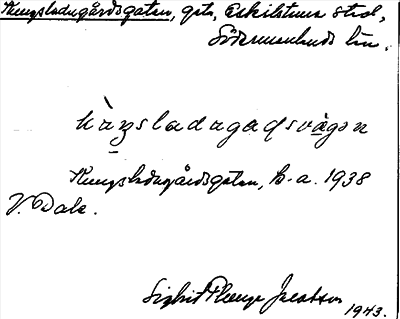 Kungsladugårdsgatan, gata, Eskilstuna stad,
Södermanlands län.
kàṇsladagaḍsvägən
Kungsladugårdsgatan, k. a. 1938
V. Dala.
Sigfrid Plenge Jacobson
1943.